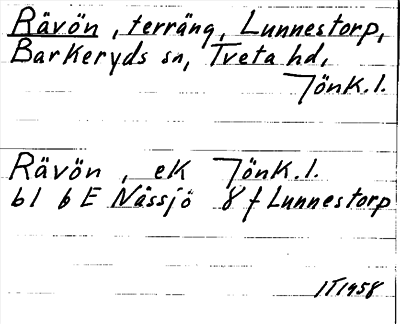 Rävön, terräng, Lunnestorp,
Barkeryds sn, Tveta hd,
Jönk.l.
Rävön, ek Jönk.l.
bl 6 E Nässjö 8 f Lunnestorp
IT1958